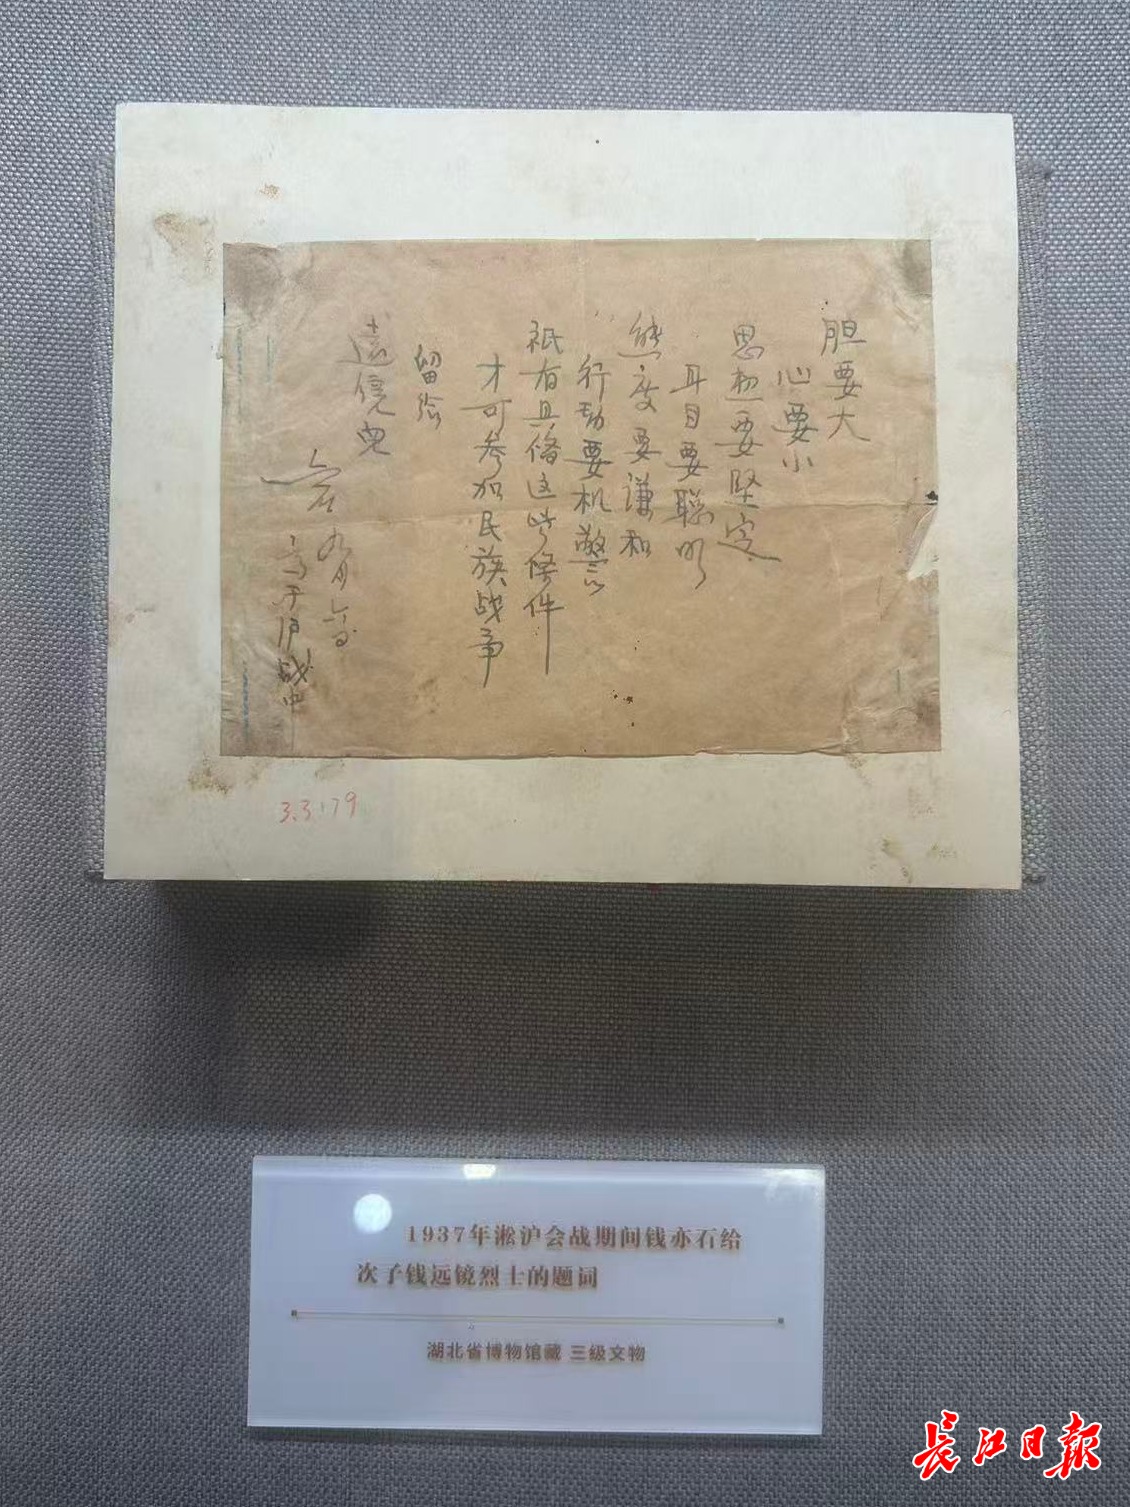 胆要大
心要小
思想要坚定
耳目要聪明
态度要谦和
行动要机警
祇有具备这些条件
才可参加民族战争
留给
远镜儿
九月六日
写于沪战中
3.3179
1937年淞沪会战期间钱亦石给
次子钱远镜烈士的题词
湖北省博物馆藏 三级文物
长江日报